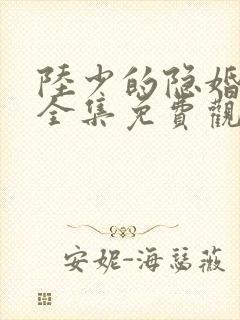 陸少的隐婚
全集免費觀
安妮-海瑟薇